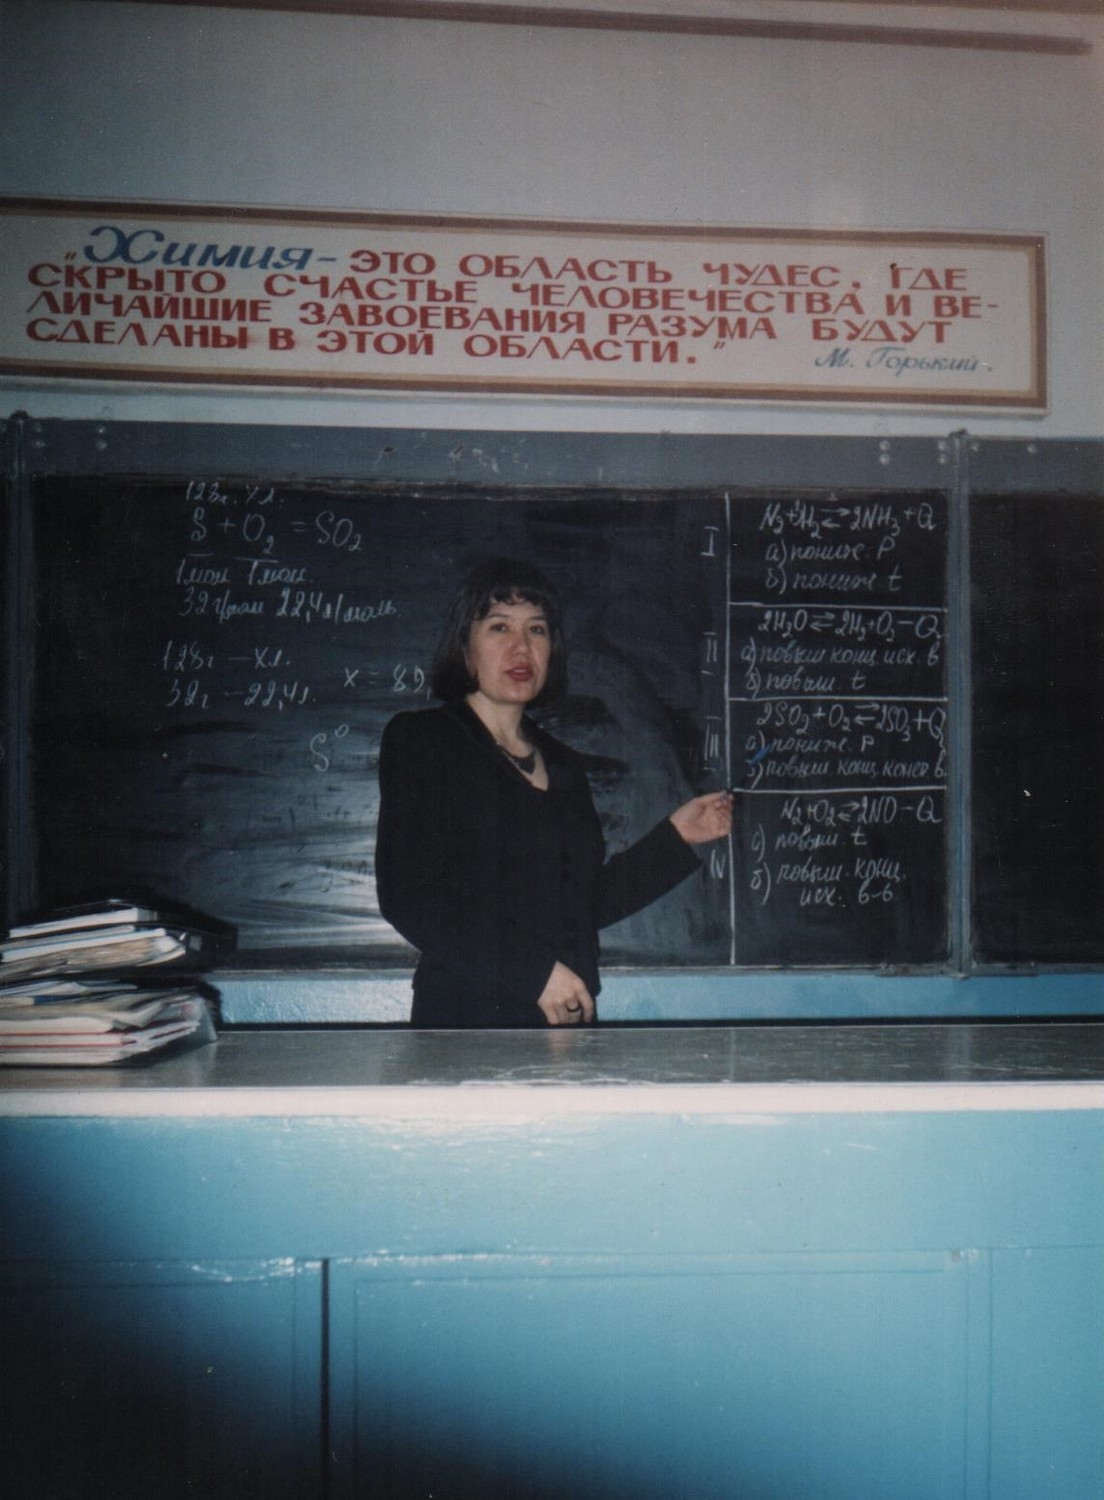 "Химия- ЭТО ОБЛАСТЬ ЧУДЕС, ГДЕ
СКРЫТО СЧАСТЬЕ ЧЕЛОВЕЧЕСТВА И ВЕ-
ЛИЧАЙШИЕ ЗАВОЕВАНИЯ РАЗУМА БУДУТ
СДЕЛАНЫ В ЭТОЙ ОБЛАСТИ."
М. Горький.
128г. Xл.
S + O₂ = SO₂
1моль 1моль.
32г/моль 22,4л/моль
128г — Xл.
32г — 22,4л.
x = 89,
S⁰
I
N₂+3H₂⇄2NH₃+Q
а) пониж. P
б) пониж t
II
2H₂O⇄2H₂+O₂−Q
а) повыш конц. исх. в
б) повыш. t
III
2SO₂+O₂⇄2SO₃+Q
а) пониж. P
б) повыш. конц. конеч. в.
IV
N₂+O₂⇄2NO−Q
а) повыш. t
б) повыш. конц.
исх. в-в